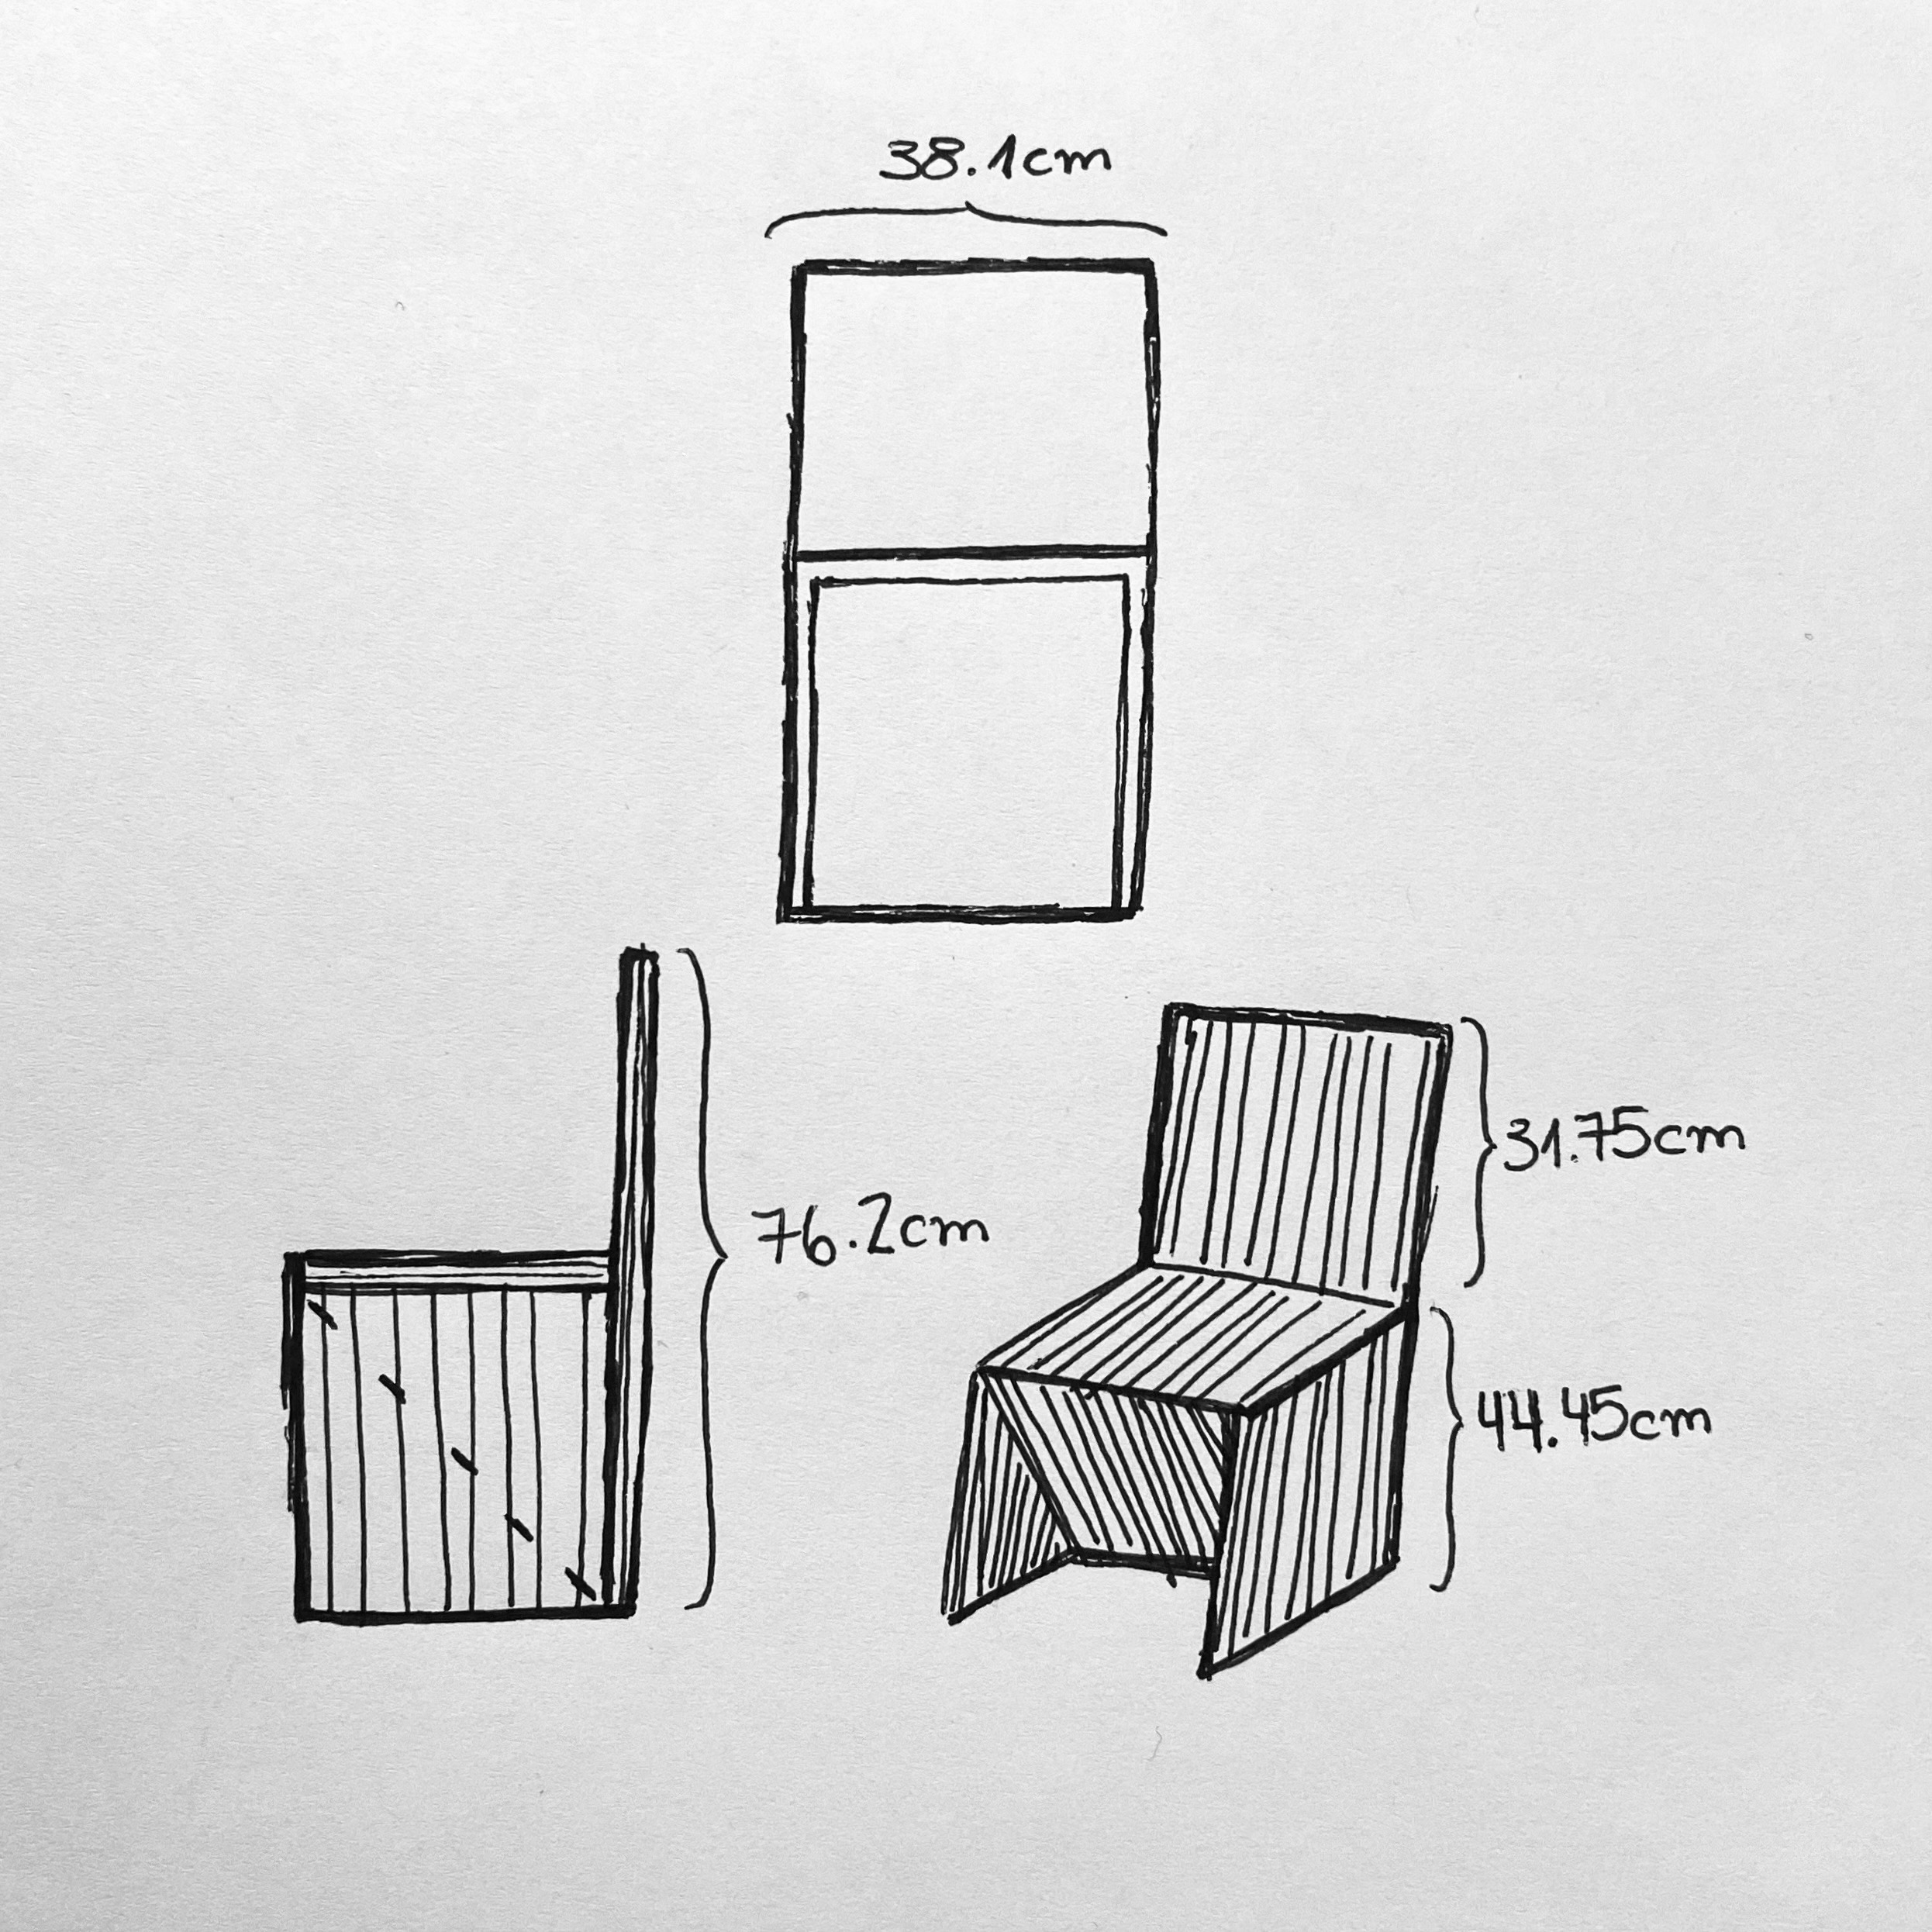 38.1cm
76.2cm
31.75cm
44.45cm